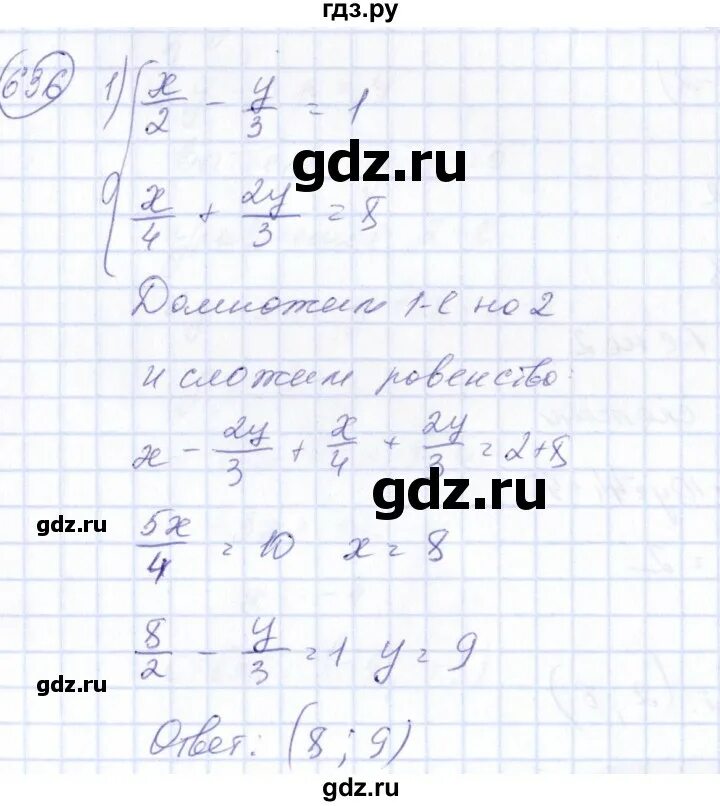 гдз.ру
636 1) { x/2 - y/3 = 1
gdz.ru
x/4 + 2y/3 = 8
Домножим 1-е на 2
и сложим равенство:
x - 2y/3 + x/4 + 2y/3 = 2+8
gdz.ru
gdz.ru
5x/4 = 10 x = 8
8/2 - y/3 = 1 y = 9
gdz.ru
Ответ: (8; 9)
gdz.ru